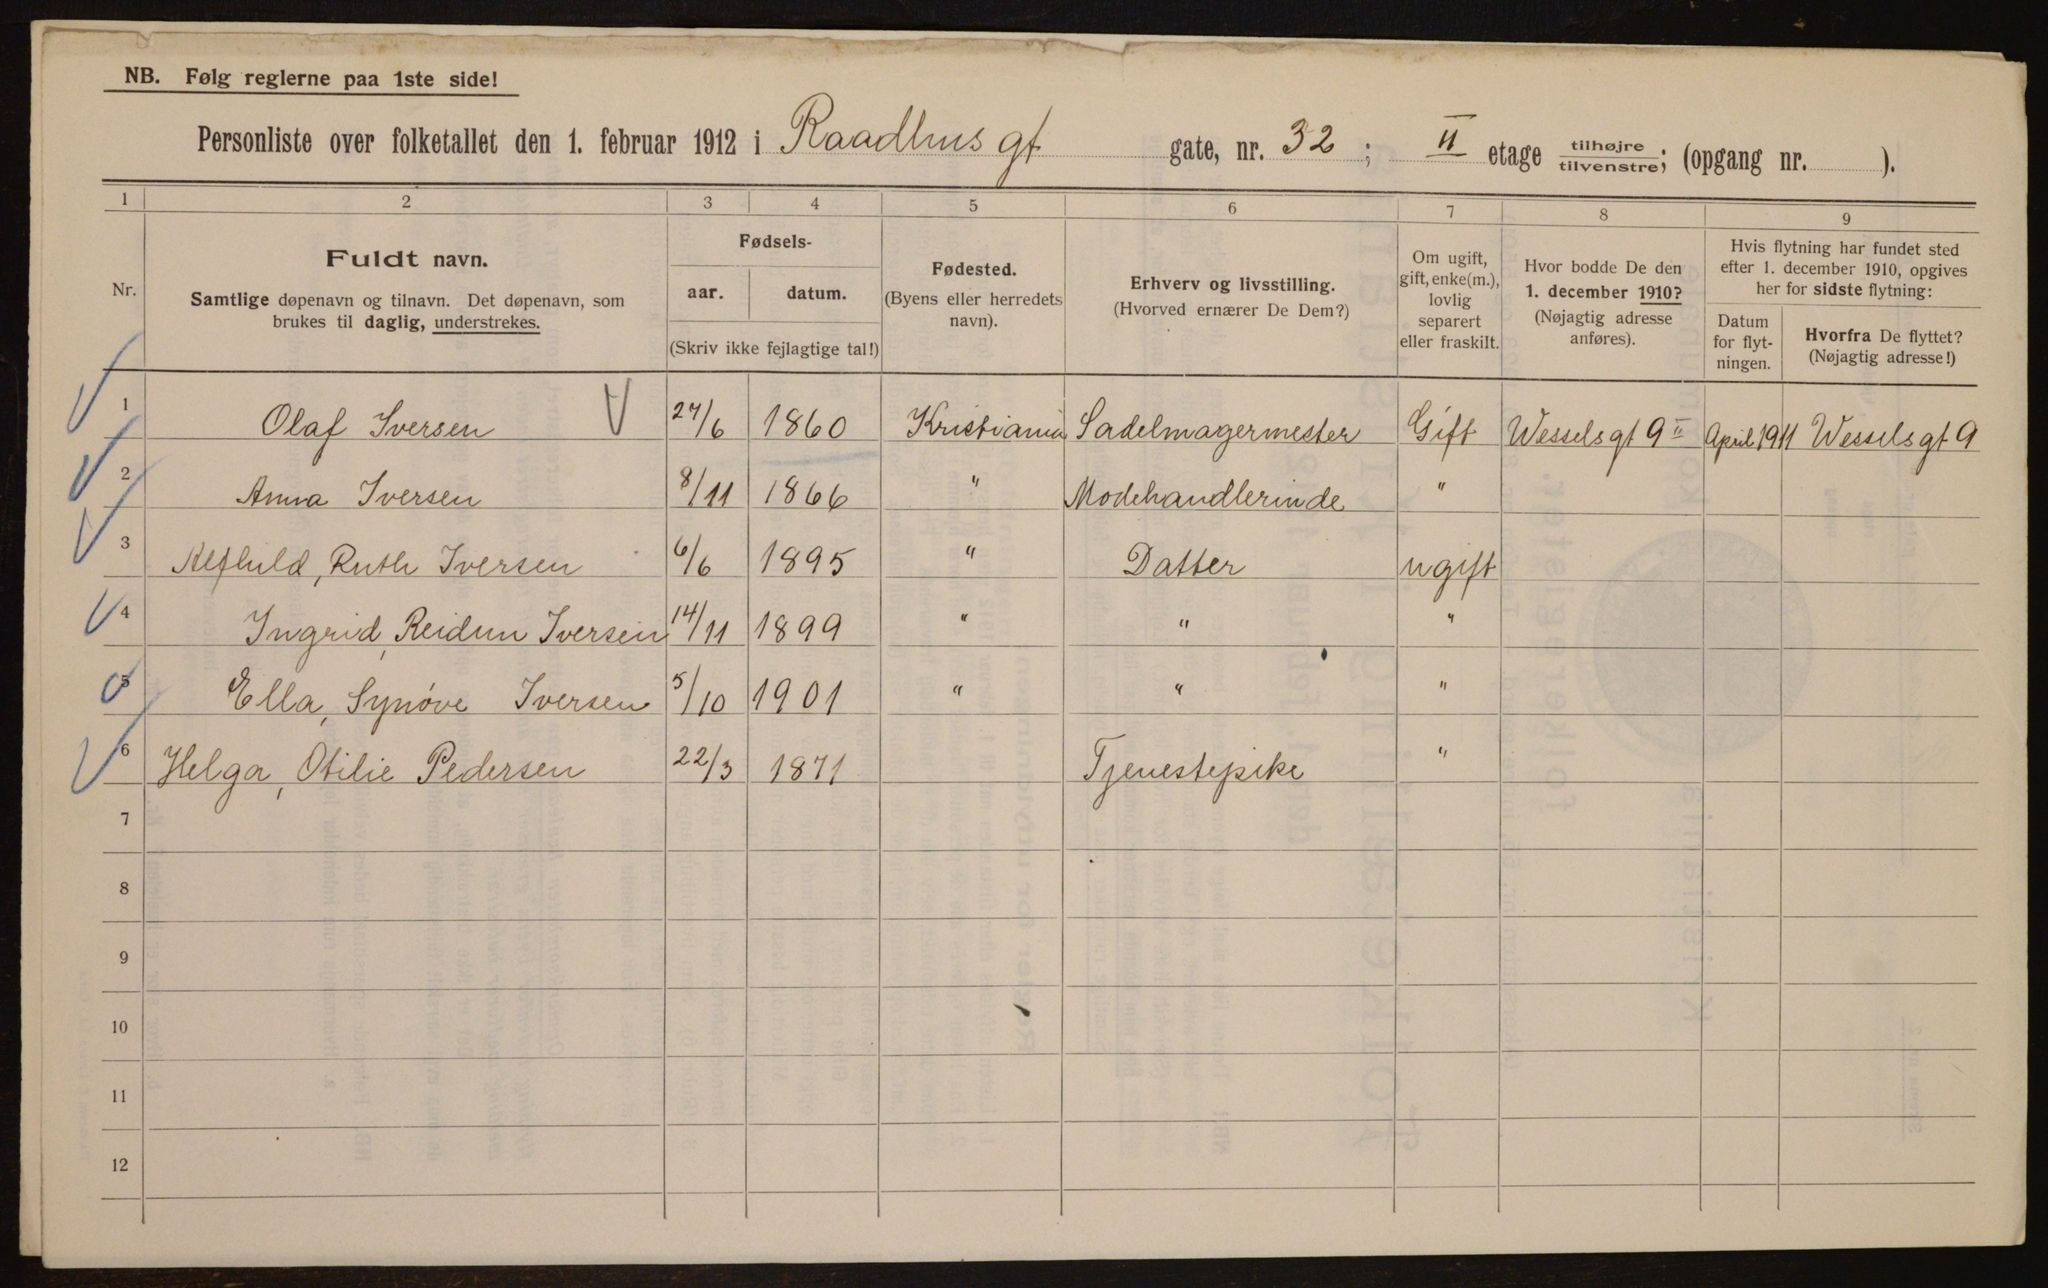 NB. Følg reglerne paa 1ste side!
Personliste over folketallet den 1. februar 1912 i Raadhus gt gate, nr. 32; II etage tilhøjre/tilvenstre; (opgang nr. ).
1 2 3 4 5 6 7 8 9
Nr.
Fuldt navn.
Samtlige døpenavn og tilnavn. Det døpenavn, som
brukes til daglig, understrekes.
Fødsels-
aar. datum.
(Skriv ikke fejlagtige tal!)
Fødested.
(Byens eller herredets
navn).
Erhverv og livsstilling.
(Hvorved ernærer De Dem?)
Om ugift,
gift, enke(m.),
lovlig
separert
eller fraskilt.
Hvor bodde De den
1. december 1910?
(Nøjagtig adresse
anføres).
Hvis flytning har fundet sted
efter 1. december 1910, opgives
her for sidste flytning:
Datum
for flyt-
ningen.
Hvorfra De flyttet?
(Nøjagtig adresse!)
1 Olaf Iversen 27/6 1860 Kristiania Sadelmagermester Gift Wesselsgt 9 II April 1911 Wesselsgt 9
2 Anna Iversen 8/11 1866 " Modehandlerinde "
3 Alfhild, Ruth Iversen 6/6 1895 " Datter ugift
4 Ingrid, Reidun Iversen 14/11 1899 " " "
5 Ella, Synøve Iversen 5/10 1901 " " "
6 Helga, Otilie Pedersen 22/3 1871 Tjenestepike "
7
8
9
10
11
12